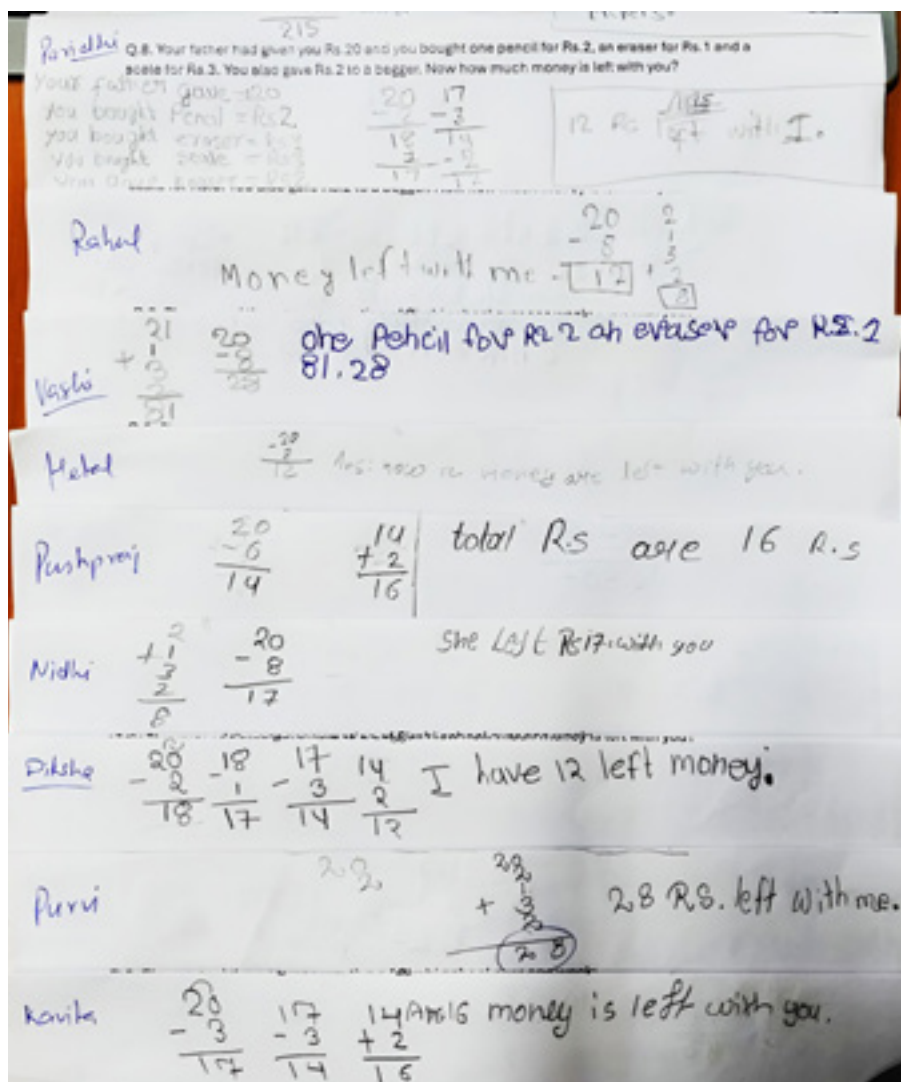 215
Paridhi Q.8. Your father had given you Rs.20 and you bought one pencil for Rs.2, an eraser for Rs.1 and a
scale for Rs.3. You also gave Rs.2 to a begger. Now how much money is left with you?
Your father gave = 20
you bought Pencil = Rs2
you bought eraser = Rs1
you bought scale = Rs3
20 17
- 2 - 3
18 14
- 2
17 12
12 Rs left with I.
Rahul
20
- 8
12
2
1
3
+ 2
8
Money left with me
Vashi
21
+ 1
3
2
21
20
-8
28
one Pencil for Rs 2 an eraser for RS.1
81.28
Metal
-20
8
12
Ans: now 12 money are left with you.
Pushpraj
20
-6
14
14
+ 2
16
total Rs are 16 R.s
Nidhi
2
+1
3
2
8
20
- 8
17
She Left Rs17 with you
Diksha
20
- 2
18
-18
1
17
17
- 3
14
14
2
12
I have 12 left money.
Purvi
28 RS. left with me.
+ 3
28
Kavita
20
- 3
17
17
- 3
14
14
+ 2
16
Ans16 money is left with you.